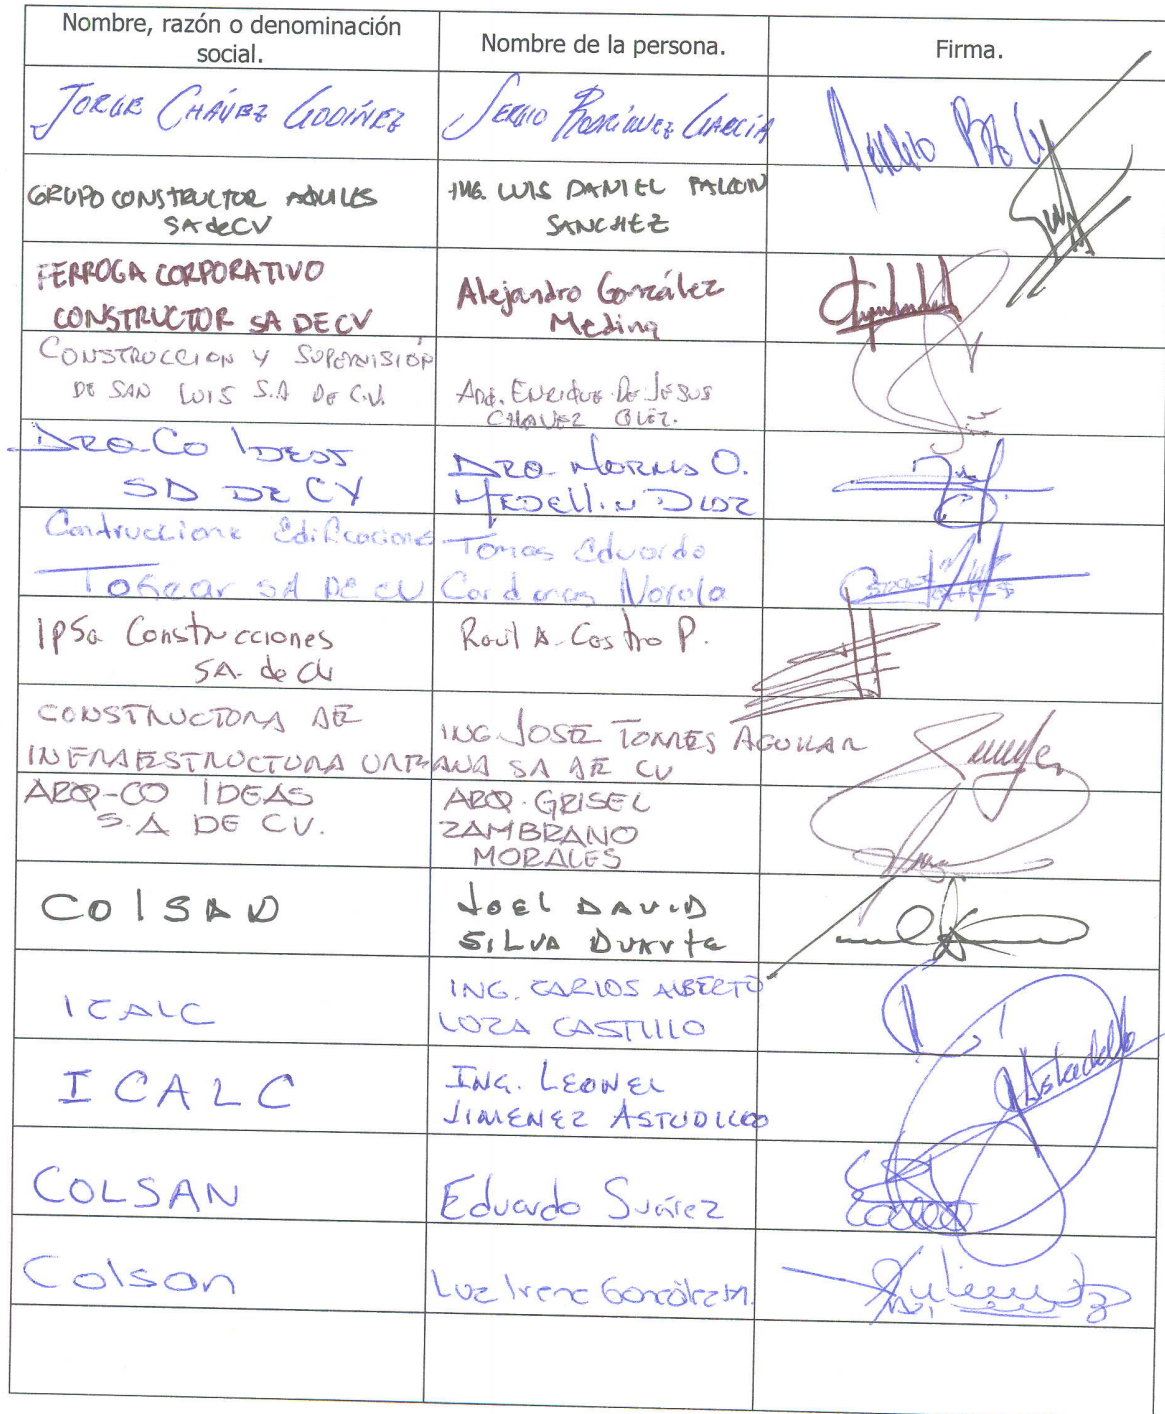 Nombre, razón o denominación
social.
Nombre de la persona.
Firma.
JORGE CHÁVEZ GODÍNEZ
SERGIO RODRÍGUEZ GARCÍA
GRUPO CONSTRUCTOR AQUILES
SA de CV
ING. LUIS DANIEL FALCON
SANCHEZ
FERROGA CORPORATIVO
CONSTRUCTOR SA DE CV
Alejandro González
Medina
CONSTRUCCION Y SUPERVISIÓN
DE SAN LUIS S.A DE C.V.
ARQ. ENRIQUE DE JESUS
CHAVEZ GLEZ.
ARQ-CO IDEAS
SA DE CV
ARQ. O.
MEDELLIN DIAZ
Edificaciones
SA DE CV
Tomas Eduardo
Cardenas
IPSa Construcciones
SA. de CV
Raul A. Castro P.
CONSTRUCTORA DE
INFRAESTRUCTURA URBANA SA DE CV
ING. JOSE TORRES AGUILAR
ARQ-CO IDEAS
S.A DE CV.
ARQ. GRISEL
ZAMBRANO
MORALES
COLSAN
JOEL DAVID
SILVA DUARTE
ICALC
ING. CARLOS ALBERTO
LOZA CASTILLO
ICALC
ING. LEONEL
JIMENEZ ASTUDILLO
Astudillo
COLSAN
Eduardo Suárez
Colsan
Luz Irene González M.